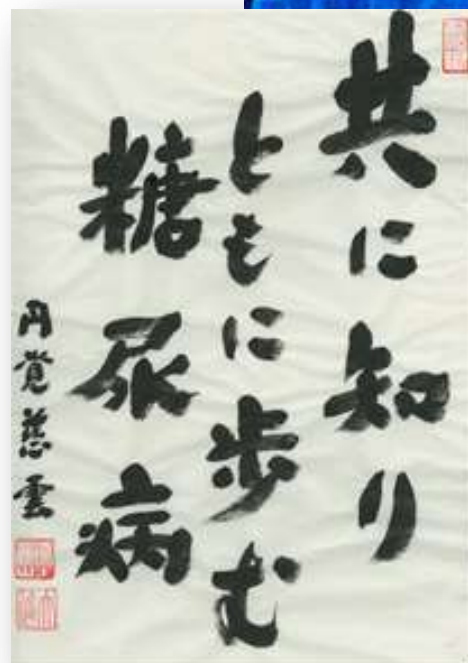 共に知り
ともに歩む
糖尿病
円覚慈雲